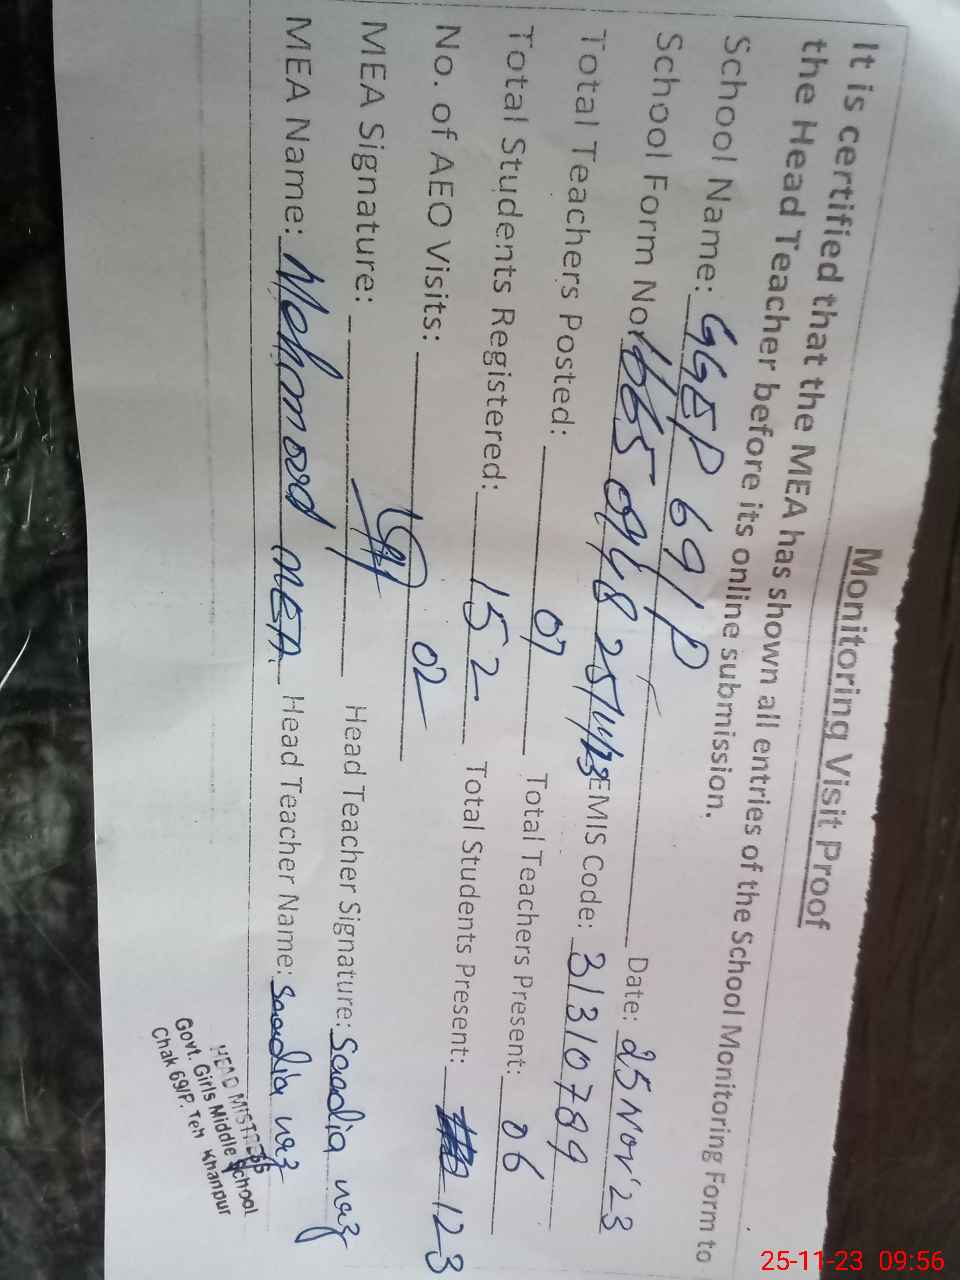 Monitoring Visit Proof
It is certified that the MEA has shown all entries of the School Monitoring Form to
the Head Teacher before its online submission.
School Name: GGEP 69/P Date: 25 Nov'23
School Form No: 1665 0448 25/11/23 EMIS Code: 31310789
Total Teachers Posted: 07 Total Teachers Present: 06
Total Students Registered: 152 Total Students Present: 123
No. of AEO Visits: 02
MEA Signature: Head Teacher Signature: Saadia naz
MEA Name: Mehmood MEA Head Teacher Name: Saadia naz
HEAD MISTRESS
Govt. Girls Middle School
Chak 69/P. Teh Khanpur
25-11-23 09:56